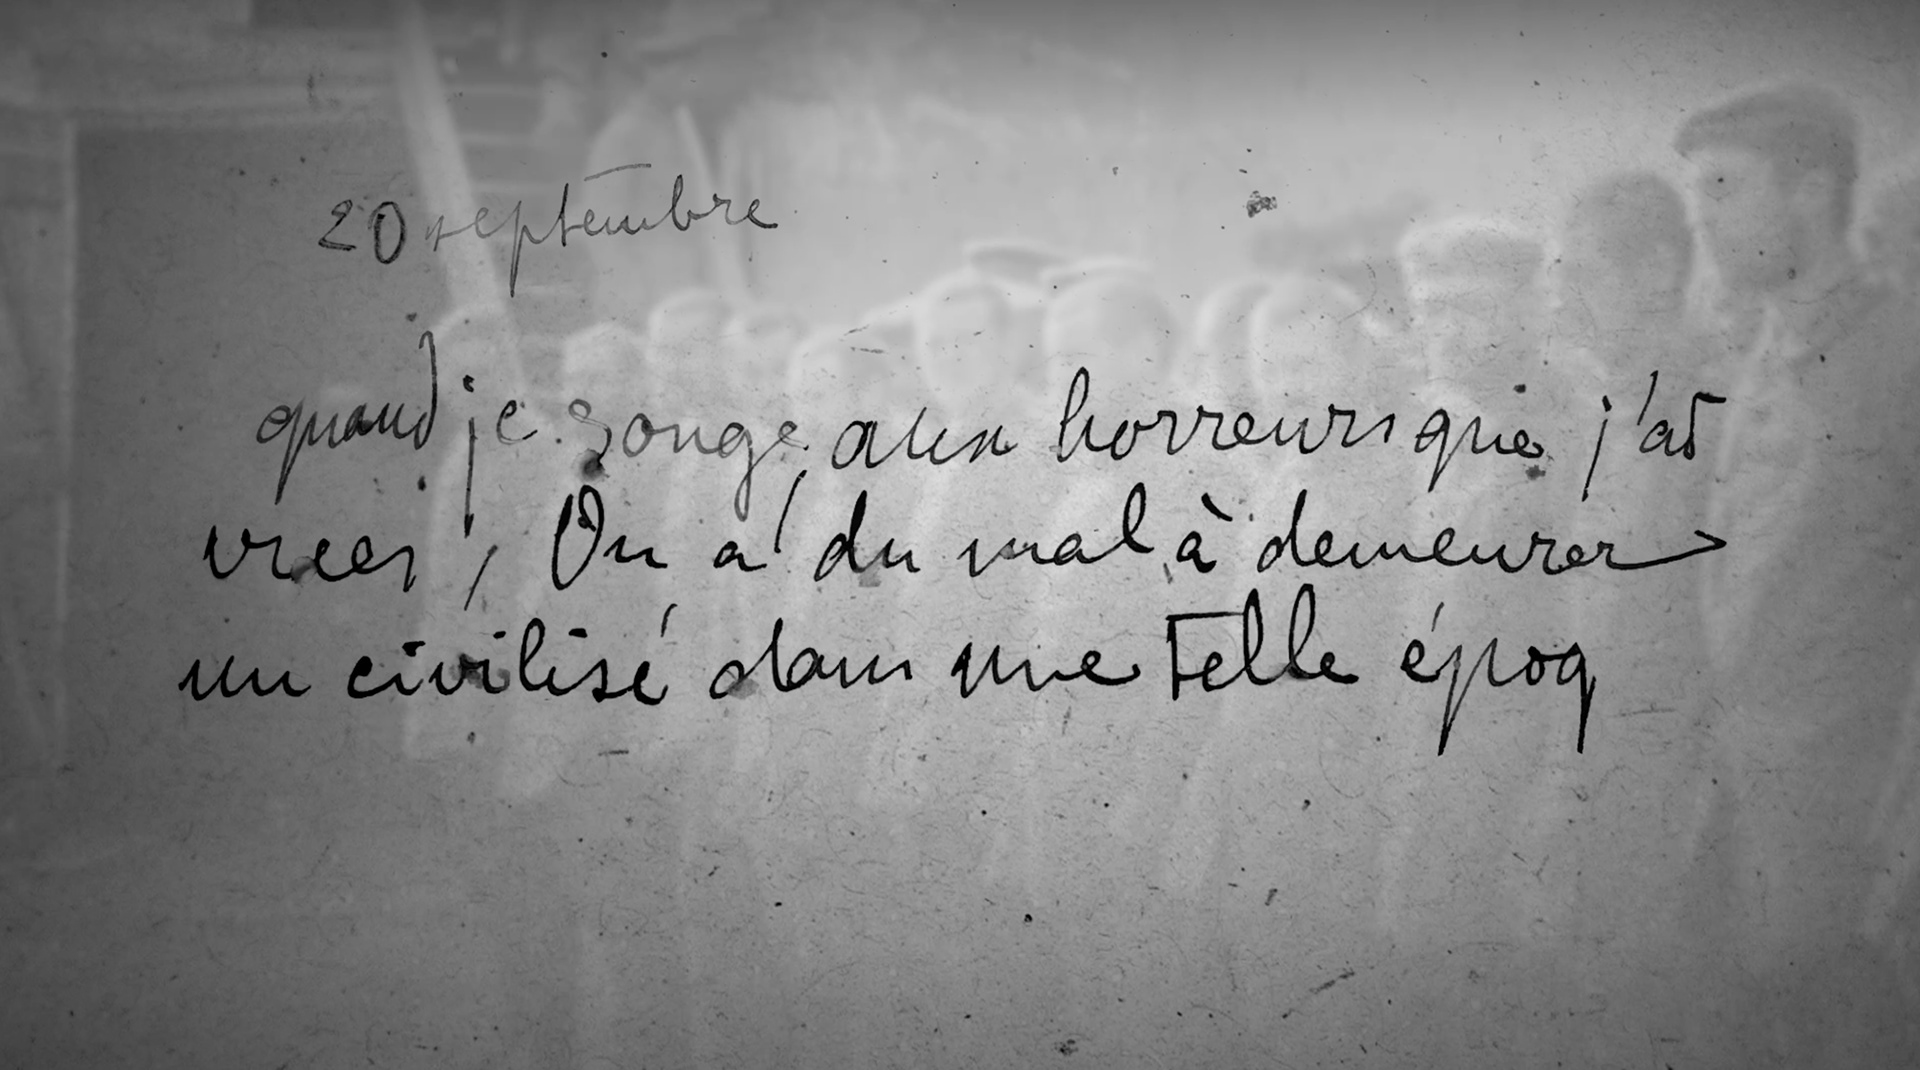 20 septembre
quand je songe aux horreurs que j'ai
vues, On a du mal à demeurer
un civilisé dans une telle époq